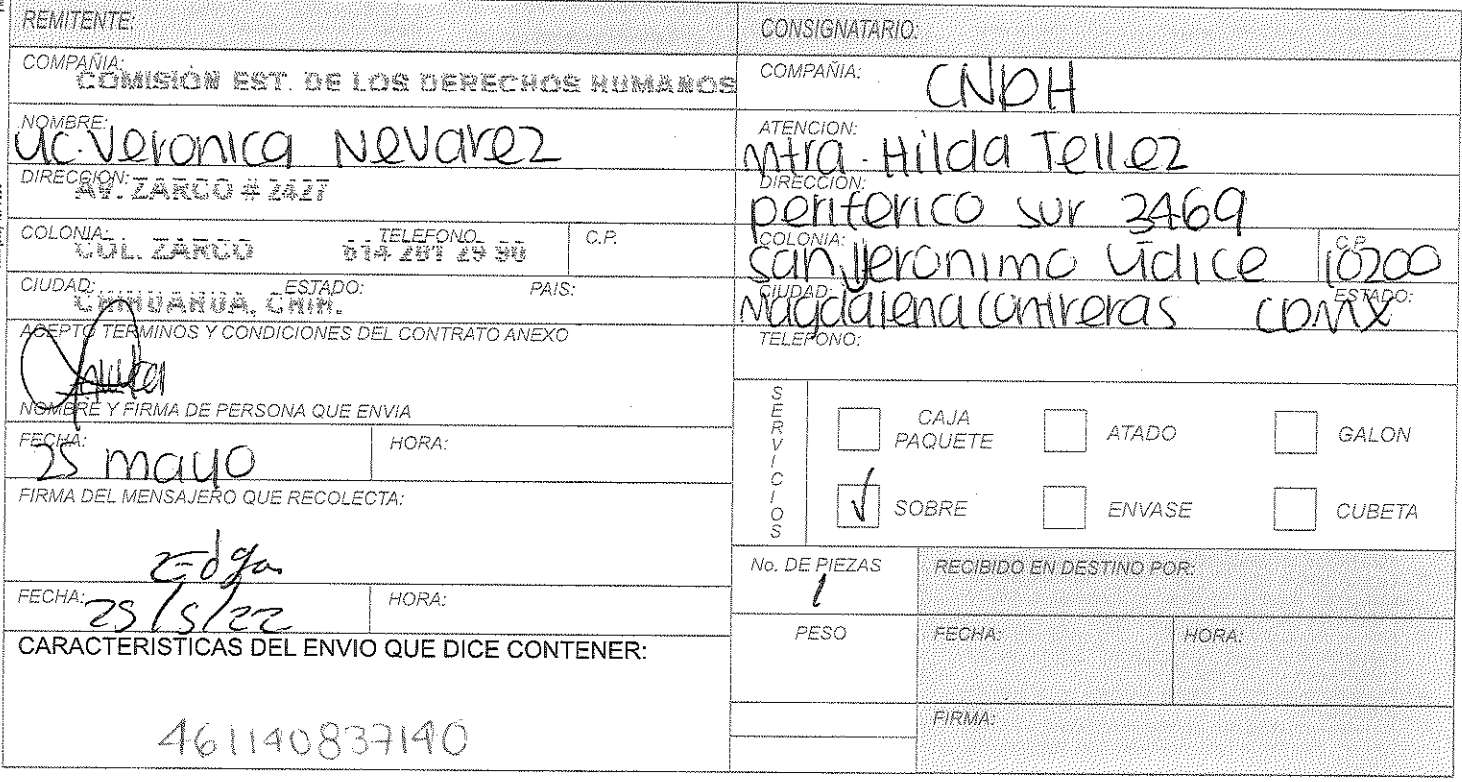 REMITENTE:
COMPAÑIA: COMISIÓN EST. DE LOS DERECHOS HUMANOS
NOMBRE: Lic. Veronica Nevarez
DIRECCIÓN: AV. ZARCO # 2427
COLONIA: COL. ZARCO TELEFONO 614 201 29 90 C.P.
CIUDAD: CHIHUAHUA, CHIH. ESTADO: PAIS:
ACEPTO TERMINOS Y CONDICIONES DEL CONTRATO ANEXO
NOMBRE Y FIRMA DE PERSONA QUE ENVIA
FECHA: 25 mayo HORA:
FIRMA DEL MENSAJERO QUE RECOLECTA:
Edgar
FECHA: 25/5/22 HORA:
CARACTERISTICAS DEL ENVIO QUE DICE CONTENER:
461140837140
CONSIGNATARIO:
COMPAÑIA: CNDH
ATENCION: Mtra. Hilda Tellez
DIRECCION: periferico sur 3469
COLONIA: San Jeronimo Lidice C.P. 10200
CIUDAD: Magdalena Contreras ESTADO: CDMX
TELEFONO:
SERVICIOS
CAJA PAQUETE ATADO GALON
SOBRE ENVASE CUBETA
No. DE PIEZAS 1 RECIBIDO EN DESTINO POR:
PESO FECHA: HORA:
FIRMA: